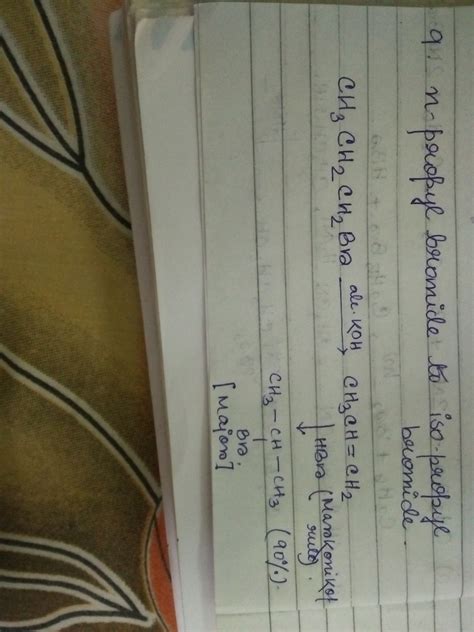 9 n propyl bromide to iso-propyl
bromide.
CH3 CH2 CH2 Br alc. KOH → CH3CH = CH2
↓ HBr (Markonikof
rule).
CH3 – CH – CH3 (90%).
Br.
[Major]